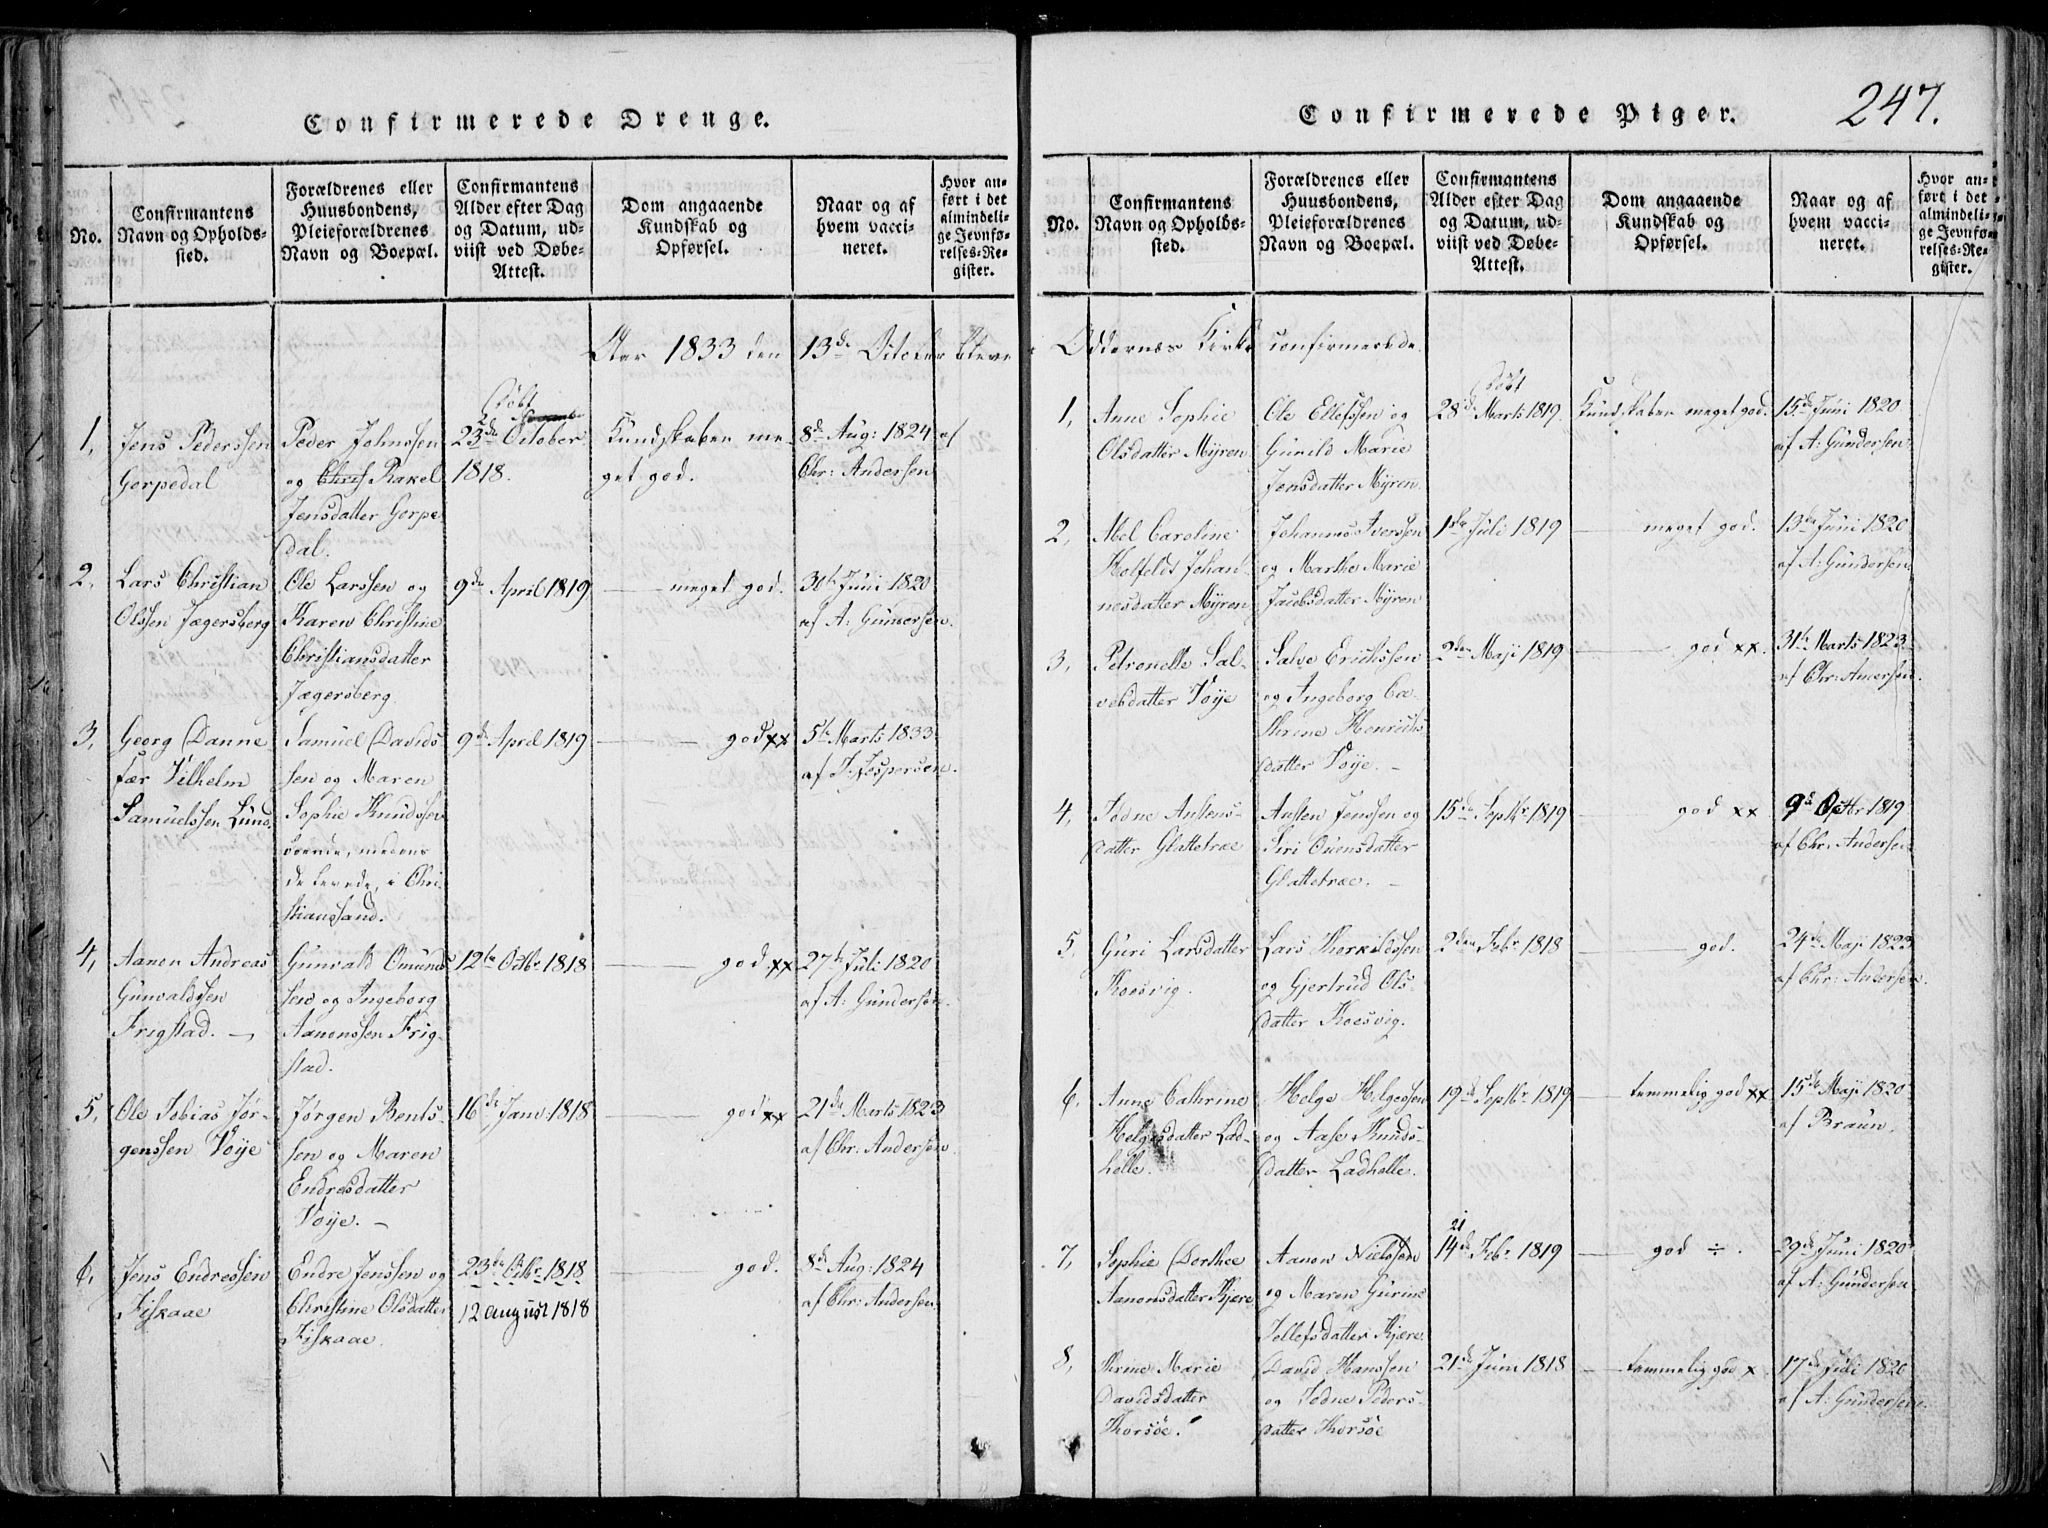 Confirmerede Drenge.
No.
Confirmantens
Navn og Opholds-
sted.
Forældrenes eller
Huusbondens,
Pleieforældrenes
Navn og Boepæl.
Confirmantens
Alder efter Dag
og Datum, ud-
viist ved Døbe-
Attest.
Dom angaaende
Kundskab og
Opførsel.
Naar og af
hvem vacci-
neret.
Hvor an-
ført i det
almindeli-
ge Jevnfø-
relses-Re-
gister.
Aar 1833 den 13de October bleve
1,
Jens Pederssen
Gorpedal
Peder Johnssen
og Chris Rakel
Jensdatter Gorpe
dal.
Døbt
23de October
1818.
Kundskaben me-
get god.
8de Aug: 1824 af
Chr: Andersen
2,
Lars Christian
Olssen Jægersberg
Ole Larssen og
Karen Christine
Christiansdatter
Jægersberg
9de April 1819
meget god.
30te Juni 1820
af A: Gundersen.
3,
Georg Danne-
fær Vilhelm
Samuelssen Lund.
Samuel Davids
sen og Maren
Sophie Knudssen
boende, medens
de levede, i Chri-
stianssand.
9de April 1819
god xx
5te Marts 1833
af J: Jespersen.
4,
Aanon Andreas
Gunvaldssen
Frigstad. —
Gunvald Omunds
sen og Ingeborg
Aanonssen Frig-
stad.
12te Octbr. 1818
god xx
27de Juli 1820
af A: Gundersen
5,
Ole Tobias Jør-
genssen Vøije
Jørgen Bents-
sen og Maren
Endresdatter
Vøije. —
16de Janv: 1818
god xx
21de Marts 1823
af Chr: Andersen.
6,
Jens Endressen
Fiskaae
Endre Jenssen og
Christine Olsdatter
Fiskaae.
23de Octbr. 1818
12 august 1818
god.
8de Aug: 1824
af Chr: Andersen.
Confirmerede Piger.
247.
No.
Confirmantens
Navn og Opholds-
sted.
Forældrenes eller
Huusbondens,
Pleieforældrenes
Navn og Boepæl.
Confirmantens
Alder efter Dag
og Datum, ud-
viist ved Døbe-
Attest.
Dom angaaende
Kundskab og
Opførsel.
Naar og af
hvem vacci-
neret.
Hvor an-
ført i det
almindeli-
ge Jevnfø-
relses-Re-
gister.
i Oddernes Kirke confirmerede.
1,
Anne Sophie
Olsdatter Myren
Ole Ellefssen og
Gunild Marie
Jensdatter Myren.
Døbt
28de Marts 1819.
Kundskaben meget god.
15de Juni 1820
af A: Gundersen
2,
Abel Caroline
Holfeldt Johan-
nesdatter Myren
Johannes Iverssen
og Marthe Marie
Jacobsdatter Myren
1ste Juli 1819
meget god.
13de Juni 1820
af A: Gundersen
3,
Petronelle Sal-
vesdatter Vøije
Salve Erichssen
og Ingeborg Ca-
thrine Henrichs
datter Vøije. —
2den Maji 1819
god xx.
31te Marts 1823
af Chr: Andersen.
4,
Todne Austens-
datter Glattetræ
Austen Jenssen og
Siri Ouensdatter
Glattetræ. —
15de Septbr. 1819
god xx
9de Octbr 1819
af Chr: Andersen
5,
Guri Larsdatter
Koesvig.
Lars Thorkildssen
og Gjertrud Ols-
datter Koesvig.
2den Febr. 1818
god.
24de Maji 1823
af Chr: Andersen.
6.
Anne Cathrine
Helgesdatter Lad-
helle.
Helge Helgessen
og Aase Knuds-
datter Ladhelle.
19de Septbr. 1819
temmelig god xx
15de Maji 1820
af Braun.
7,
Sophie Dorthee
Aanonsdatter Kjære
Aanon Nielssen
og Maren Gurine
Tellefsdatter Kjære
21
14de Febr. 1819
god ÷.
29de Juni 1820
af A: Gundersen
8,
Thrine Marie
Davidsdatter
Thorsøe.
David Hanssen
og Todne Peders-
datter Thorsøe
21de Juni 1818
temmelig god x.
17de Juli 1820
af A: Gundersen.